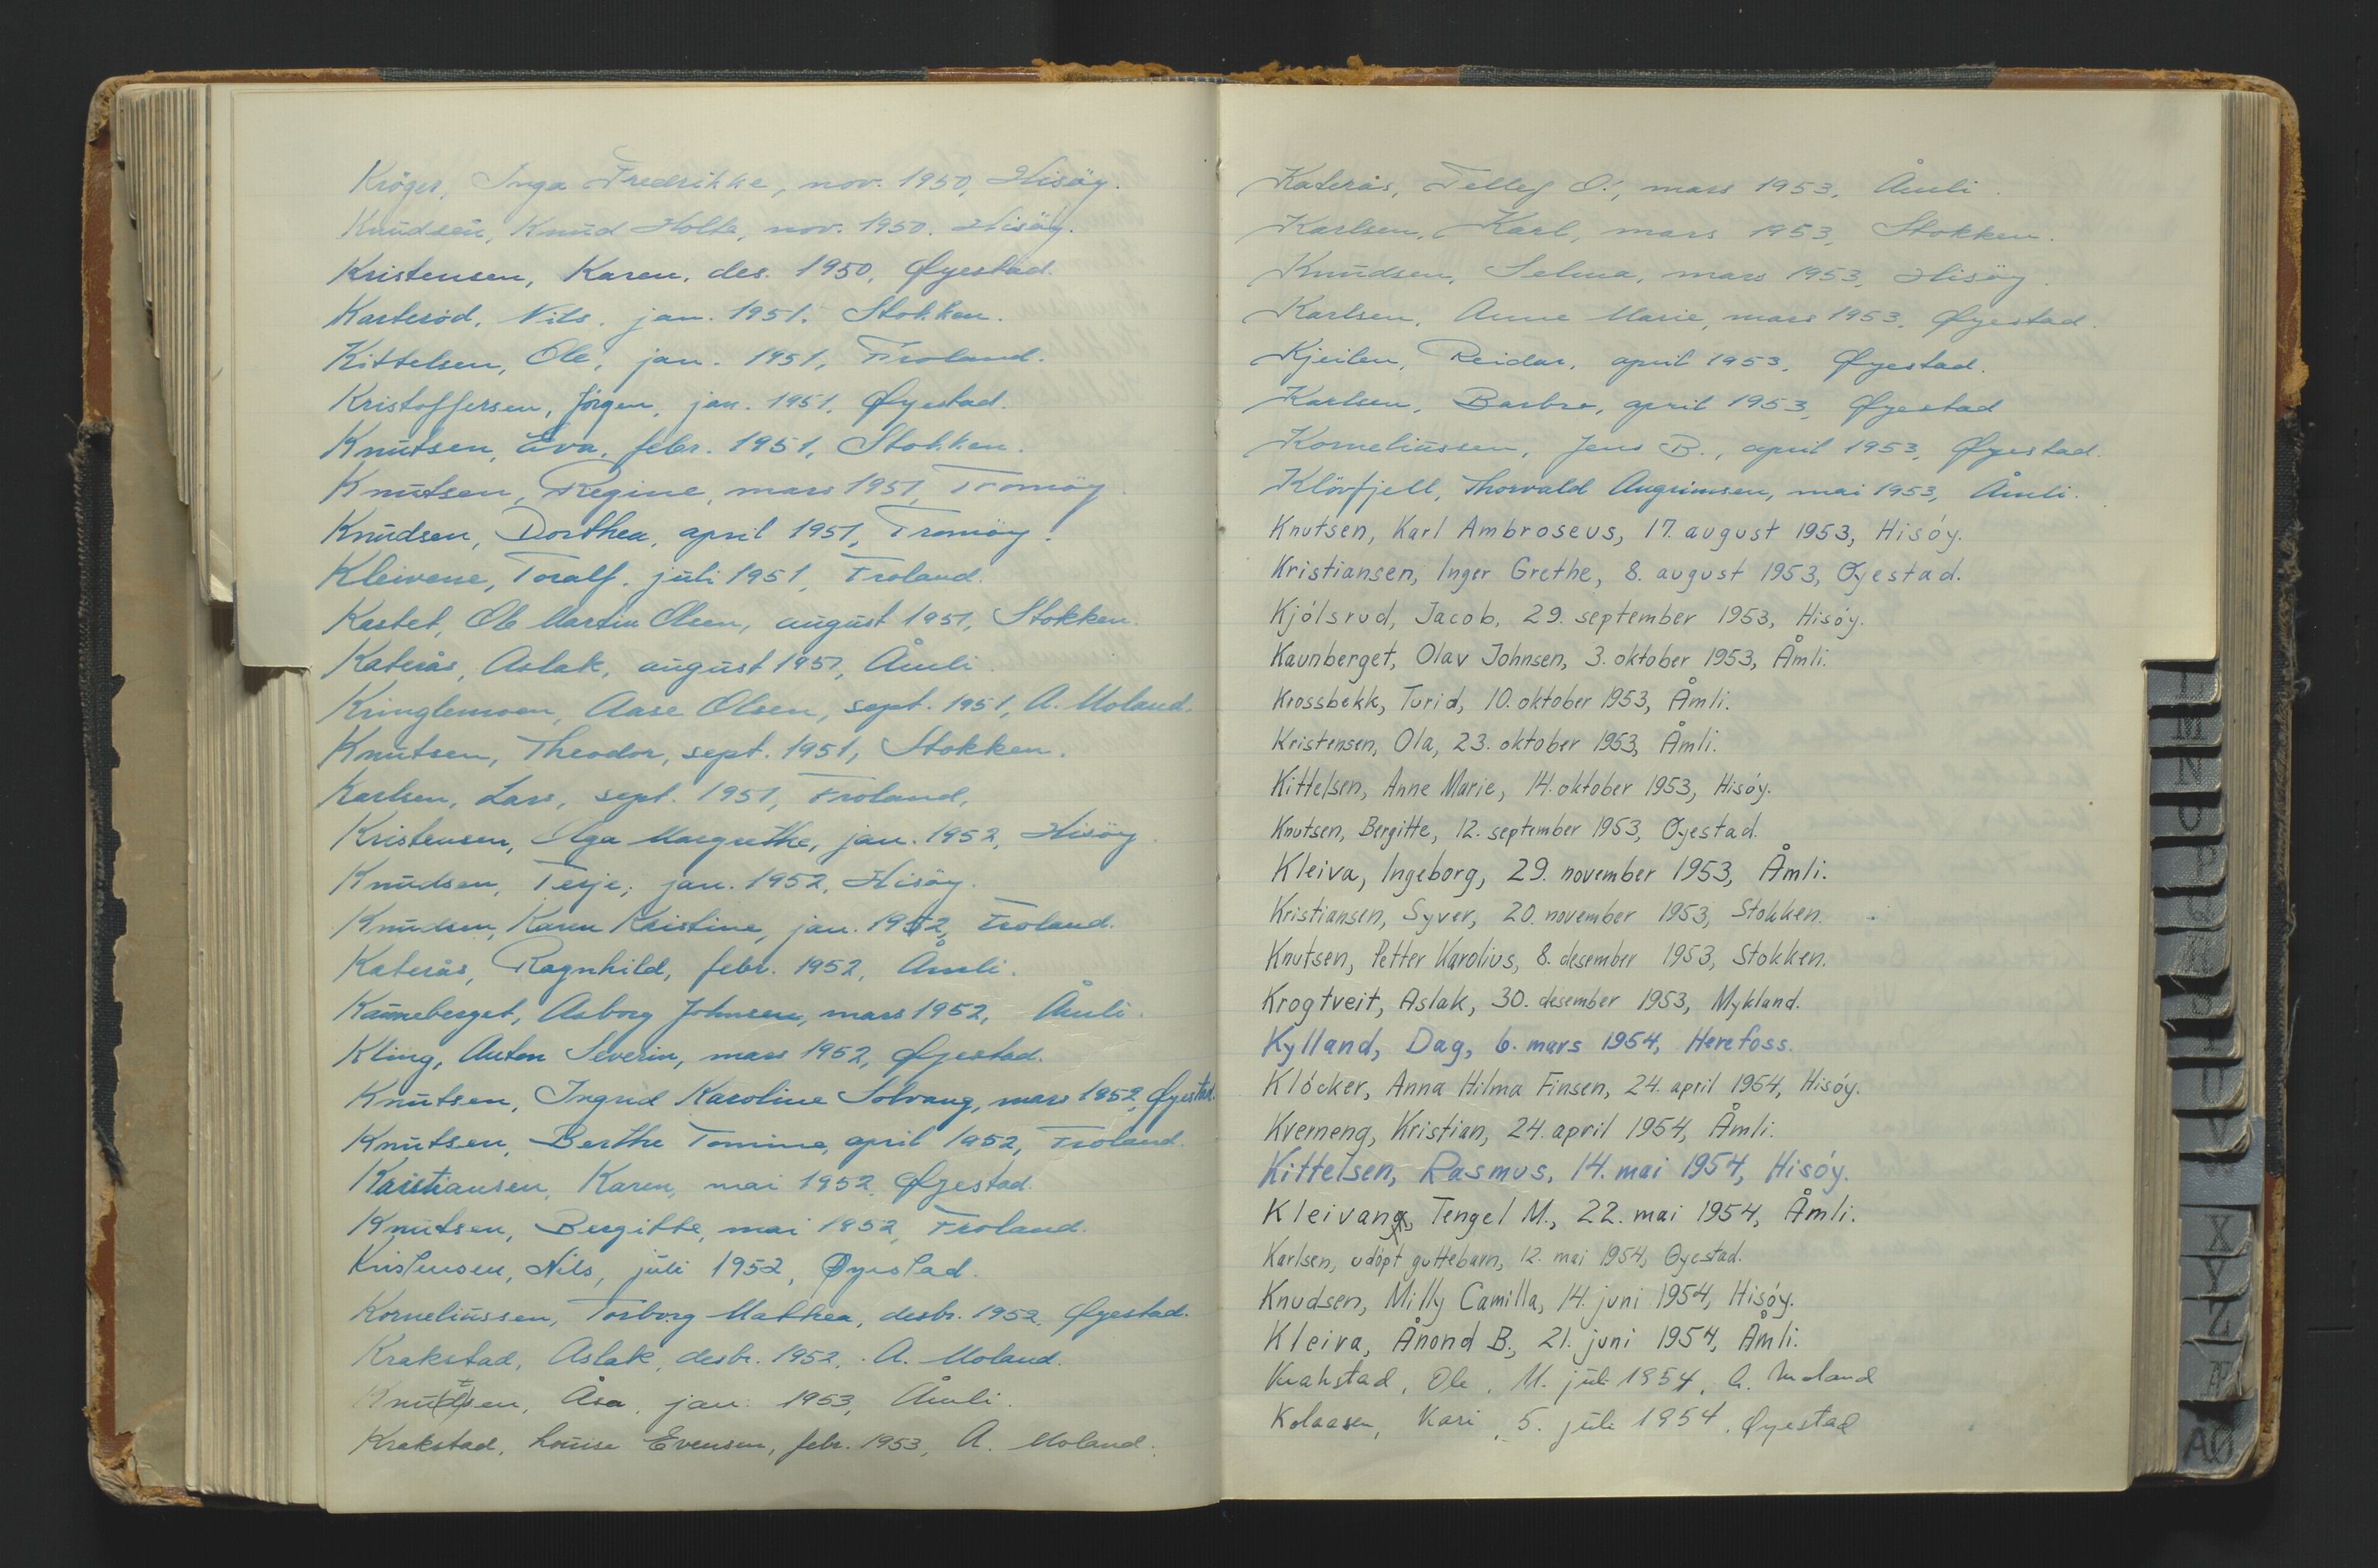 Kröger, Inga Fredrikke, nov. 1950, Hisöy.
Knudsen, Knud Holte, nov. 1950. Hisöy.
Kristensen, Karen, des. 1950, Øyestad.
Karteröd, Nils, jan. 1951. Stokken.
Kittelsen, Ole, jan. 1951, Froland.
Kristoffersen, Jörgen, jan. 1951, Øyestad.
Knutsen, Eva, febr. 1951, Stokken.
Knutsen, Regine, mars 1951, Tromöy
Knudsen, Dorthea, april 1951, Tromöy.
Kleivene, Toralf, juli 1951, Froland.
Kastet, Ole Martin Olsen, august 1951, Stokken.
Katerås, Aslak, august 1951, Åmli.
Kringlemoen, Aase Olsen, sept. 1951, A. Moland.
Knutsen, Theodor, sept. 1951, Stokken.
Karlsen, Lars, sept. 1951, Froland,
Kristensen, Olga Margrethe, jan. 1952, Hisöy.
Knudsen, Terje, jan. 1952, Hisöy.
Knudsen, Karen Kristine, jan. 1952, Froland.
Katerås, Ragnhild, febr. 1952, Åmli.
Kauneberget, Asborg Johnsen, mars 1952, Åmli.
Kling, Anton Severin, mars 1952, Øyestad.
Knutsen, Ingrid Karoline Solvang, mars 1952, Øyestad.
Knutsen, Berthe Tomine, april 1952, Froland.
Kristiansen, Karen, mai 1952, Øyestad.
Knutsen, Bergitte, mai 1952, Froland.
Kristensen, Nils, juli 1952, Øyestad.
Korneliussen, Torborg Mathea, desbr. 1952, Øyestad.
Krakstad, Aslak, desbr. 1952, A. Moland.
Knutsen, Åsa, jan. 1953, Åmli.
Krakstad, Louise Evensen, febr. 1953, A. Moland.
Katerås, Tellef O., mars 1953, Åmli.
Karlsen, Karl, mars 1953, Stokken.
Knudsen, Selma, mars 1953, Hisöy.
Karlsen, Anne Marie, mars 1953, Øyestad.
Kjeilen, Reidar, april 1953, Øyestad.
Karlsen, Barbro, april 1953, Øyestad
Korneliussen, Jens B., april 1953, Øyestad.
Klövfjell, Thorvald Angrimsen, mai 1953, Åmli.
Knutsen, Karl Ambroseus, 17. august 1953, Hisóy.
Kristiansen, Inger Grethe, 8. august 1953, Øyestad.
Kjólsrud, Jacob, 29. september 1953, Hisóy.
Kaunberget, Olav Johnsen, 3. oktober 1953, Åmli.
Krossbekk, Turid, 10. oktober 1953, Åmli.
Kristensen, Ola, 23. oktober 1953, Åmli.
Kittelsen, Anne Marie, 14. oktober 1953, Hisóy.
Knutsen, Bergitte, 12. september 1953, Øyestad.
Kleiva, Ingeborg, 29. november 1953, Åmli.
Kristiansen, Syver, 20. november 1953, Stokken.
Knutsen, Petter Karolius, 8. desember 1953, Stokken.
Krogtveit, Aslak, 30. desember 1953, Mykland.
Kylland, Dag, 6. mars 1954, Herefoss.
Klócker, Anna Hilma Finsen, 24. april 1954, Hisóy.
Kvemeng, Kristian, 24. april 1954, Åmli.
Kittelsen, Rasmus, 14. mai 1954, Hisóy.
Kleivan, Tengel M., 22. mai 1954, Åmli.
Karlsen, udópt guttebarn, 12. mai 1954, Øyestad.
Knudsen, Milly Camilla, 14. juni 1954, Hisóy.
Kleiva, Ånond B., 21. juni 1954, Åmli.
Krakstad, Ole, 11. juli 1954, A. Moland
Kolaasen, Kari, 5. juli 1954, Øyestad
M
N
O
P
R
S
T
U
V
X
Y
Z
Æ
AØ